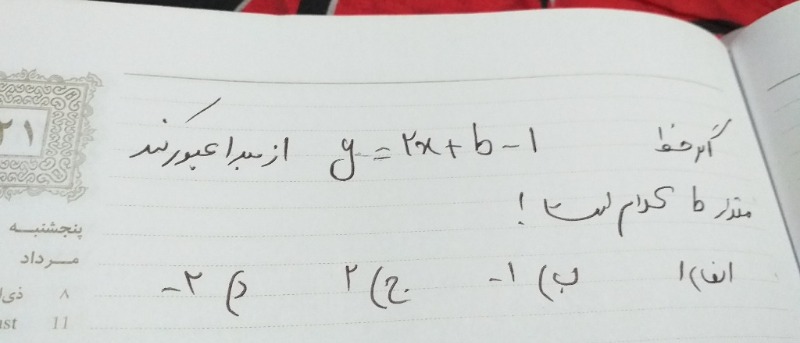 اگر خط y = ۲x + b - ۱ از مبدا عبور کند
مقدار b کدام است !
الف) ۱ ب) ۱- ج) ۲ د) ۲-
۲۱
پنجشنبـــه
مــرداد
۸
11